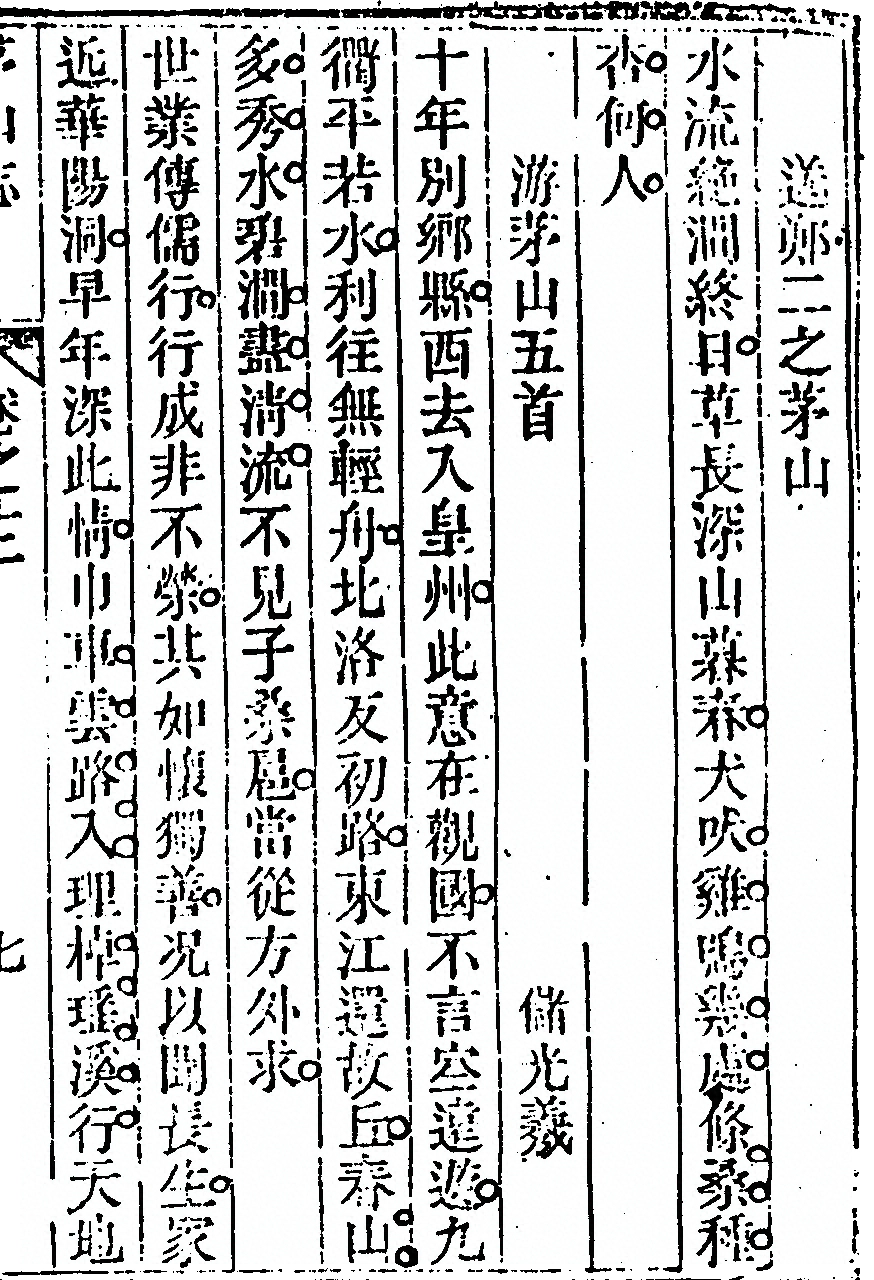 送鄭二之茅山
水流絶澗終日草長深山暮春犬吠雞鳴幾處條桑種
杏何人
游茅山五首 儲光羲
十年別鄉縣西去入皇州此意在觀國不言空遠遊九
衢平若水利往無輕舟北洛反初路東江還故丘春山
多秀木碧澗盡清流不見子桑扈當從方外求
世業傳儒行行成非不榮其如懷獨善况以聞長生家
近華陽洞早年深此情巾車雲路入理棹瑤溪行天地
茅山志 卷之十二 七